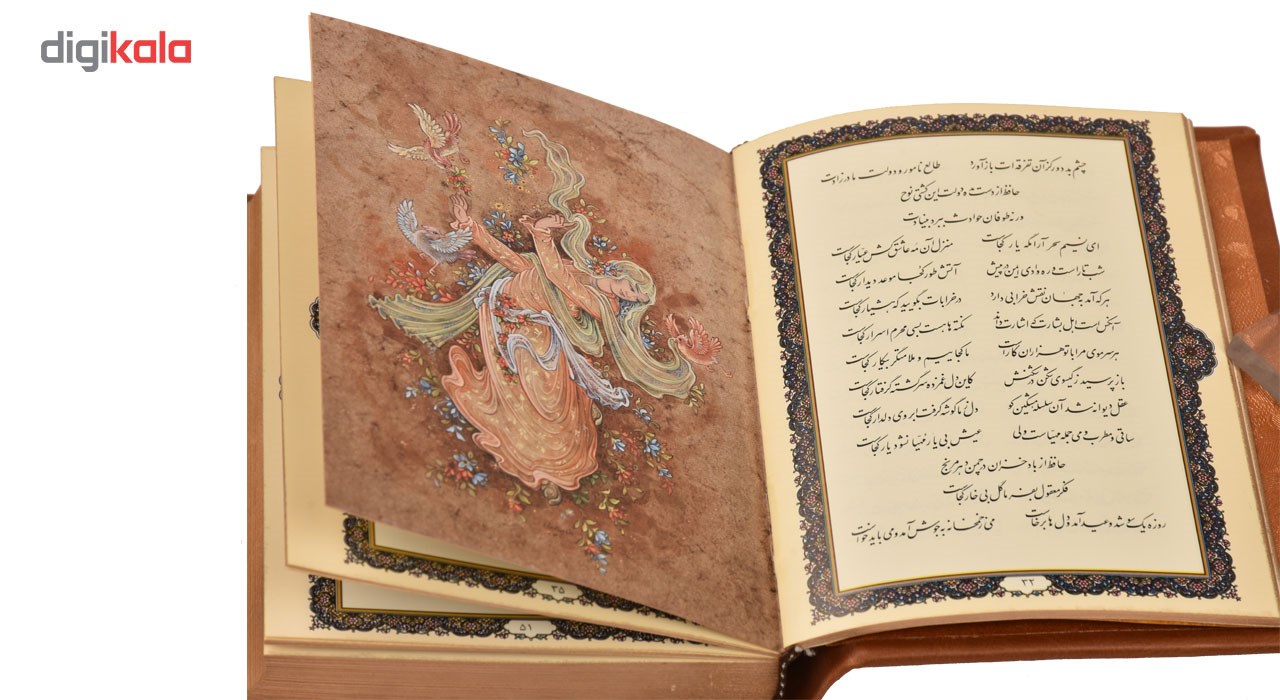 digikala
چشم بد دور کز آن تفرقه‌ات باز آورد طالع نامور و دولت مادرزادت
حافظ از دست مده دولت این کشتی نوح
ورنه طوفان حوادث ببرد بنیادت
ای نسیم سحر آرامگه یار کجاست منزل آن مه عاشق کش عیار کجاست
شب تار است و ره وادی ایمن در پیش آتش طور کجا موعد دیدار کجاست
هر که آمد به جهان نقش خرابی دارد در خرابات بگویید که هشیار کجاست
آنکس است اهل بشارت که اشارت داند نکته‌ها هست بسی محرم اسرار کجاست
هر سر موی مرا با تو هزاران کار است ما کجاییم و ملامتگر بیکار کجاست
باز پرسید ز گیسوی شکن در شکنش کاین دل غمزده سرگشته گرفتار کجاست
عقل دیوانه شد آن سلسله مشکین کو دل ز ما گوشه گرفت ابروی دلدار کجاست
ساقی و مطرب و می جمله مهیاست ولی عیش بی یار مهیا نشود یار کجاست
حافظ از باد خزان در چمن دهر مرنج
فکر معقول بفرما گل بی خار کجاست
روزه یک سو شد و عید آمد و دل‌ها برخاست می ز خمخانه به جوش آمد و می باید خواست
۳۲
۳۵
۵۱